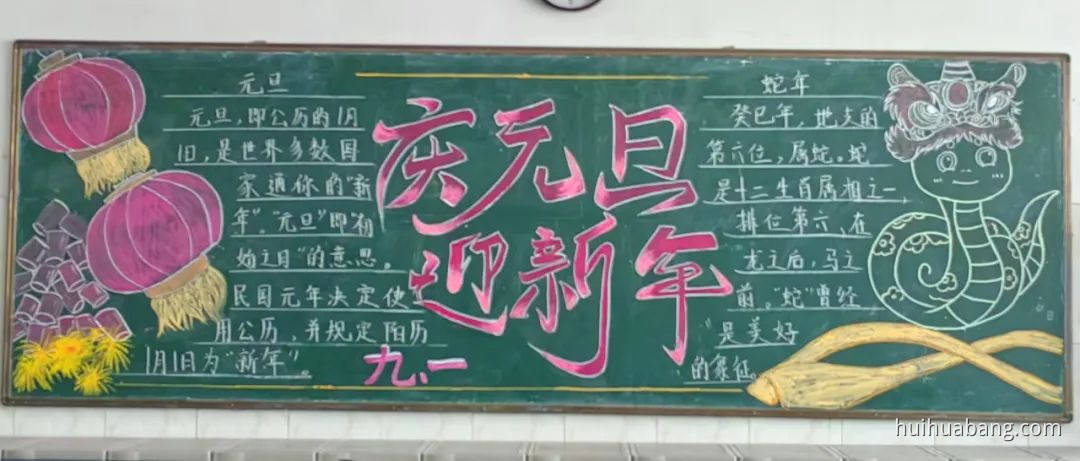 元旦
元旦，即公历的1月
1日，是世界多数国
家通称的"新
年"。"元旦"即"初
始之日"的意思。
民国元年决定使
用公历，并规定阳历
1月1日为"新年"。
庆元旦
迎新年
九.一
蛇年
癸巳年，地支的
第六位，属蛇。蛇
是十二生肖属相之一，
排位第六，在
龙之后，马之
前。"蛇"曾经
"是美好
的象征。
huihuabang.com